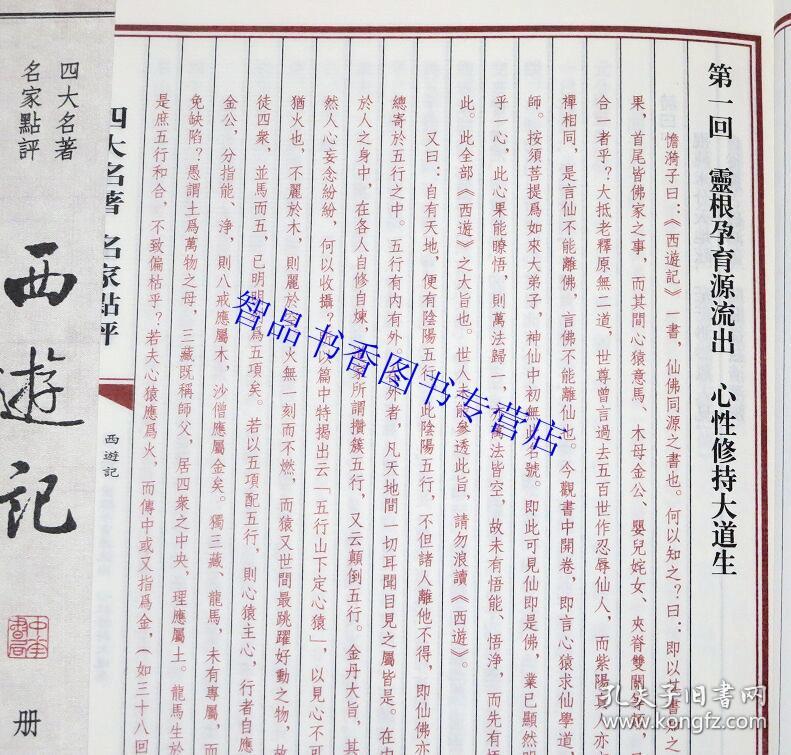 第一回　靈根孕育源流出　心性修持大道生
憺漪子曰：《西遊記》一書，仙佛同源之書也。何以知之？曰：即以其書知之
果，首尾皆佛家之事，而其間心猿意馬、木母金公、嬰兒姹女、夾脊雙關
合一者乎？大抵老釋原無二道，世尊曾言過去五百世作忍辱仙人，而紫陽真人亦
禪相同，是言仙不能離佛，言佛不能離仙也。今觀書中開卷，即言心猿求仙學道，
師。按須菩提爲如來大弟子，神仙中初無此名號。即此可見仙即是佛，業已顯然明
乎一心，此心果能瞭悟，則萬法歸一，萬法皆空，故未有悟能、悟淨，而先有悟
此。此全部《西遊》之大旨也。世人未能參透此旨，請勿浪讀《西遊》。
又曰：自有天地，便有陰陽五行，此陰陽五行，不但諸人離他不得，即仙佛亦
總寄於五行之中。五行有内有外。外者，凡天地間一切耳聞目見之屬皆是。在
於人之身中，在各人自修自煉，家所謂攢簇五行，又云顛倒五行。金丹大旨，其
然人心妄念紛紛，何以收攝？篇中特揭出云「五行山下定心猿」，以見心不可
猶火也，不麗於木，則麗於火無一刻而不燃，而猿又世間最跳躍好動之物，故
徒四衆，並馬而五，已明明爲五項矣。若以五項配五行，則心猿主心，行者自應
金公，分指能、淨，則八戒應屬木，沙僧應屬金矣。獨三藏、龍馬，未有專屬，而
免缺陷？愚謂土爲萬物之母，三藏既稱師父，居四衆之中央，理應屬土。龍馬生於
是庶五行和合，不致偏枯乎？若夫心猿應爲火，而傳中或又指爲金，（如三十八回
四大名著 名家點評
西遊記
四大名著
名家點評
西遊記
中華書局
册
智品书香图书专营店
孔夫子旧书网
www.kongfz.com